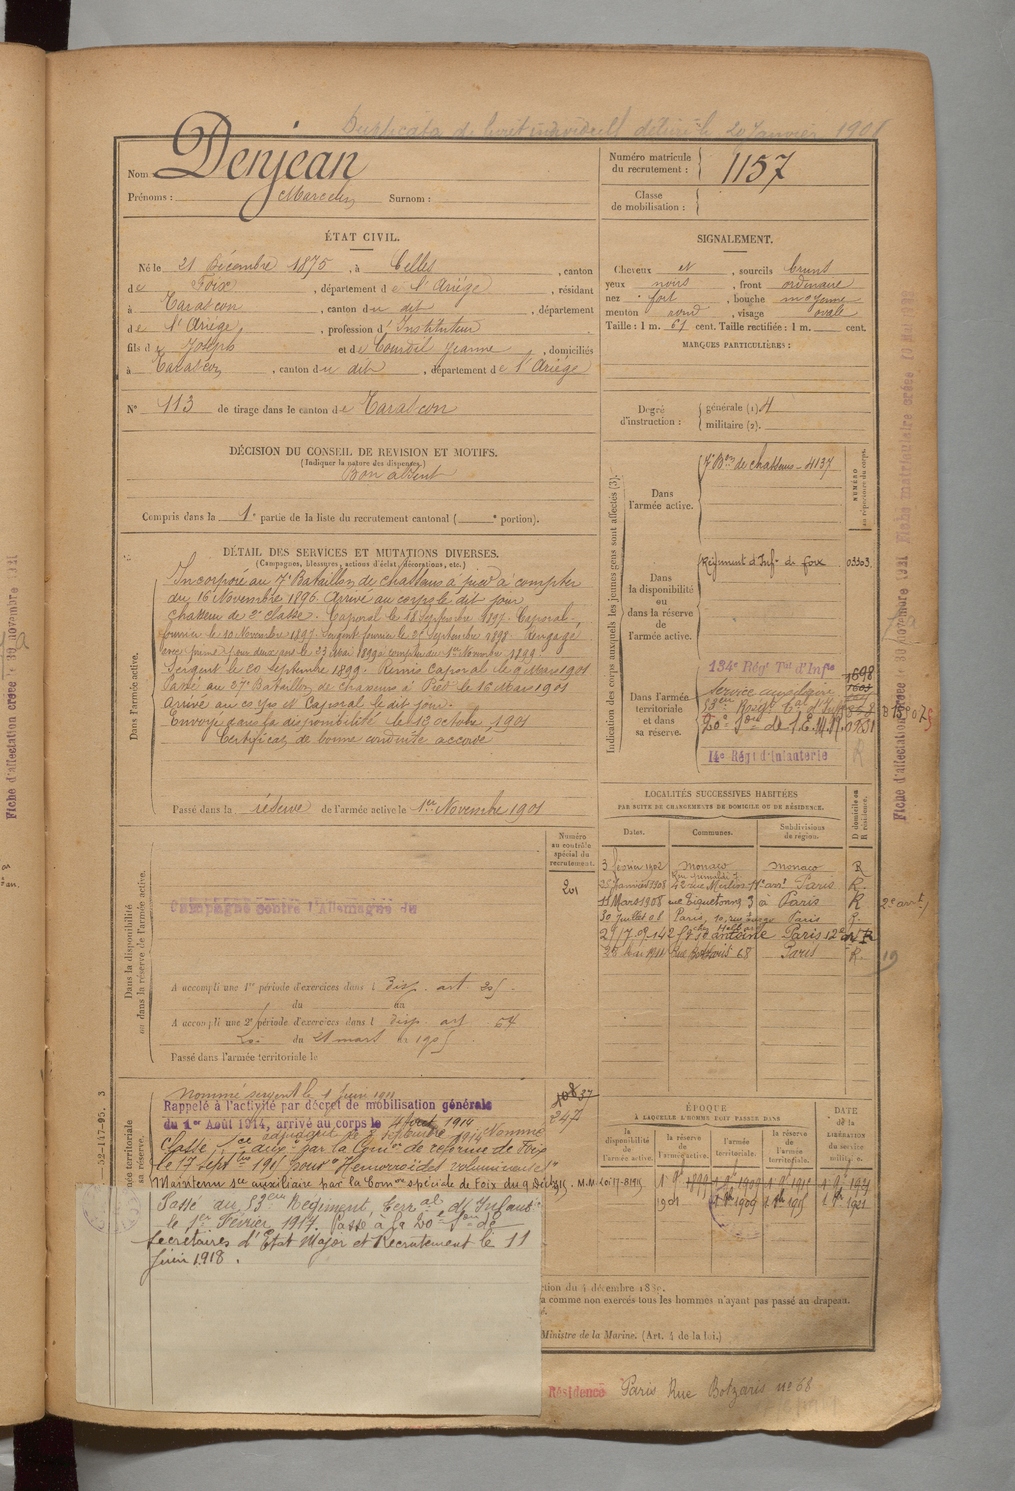 Duplicata de livret individuel délivré le 20 Janvier 1908
Nom Denjean
Prénoms : Marcelin Surnom :
Numéro matricule du recrutement : 1157
Classe de mobilisation :
ÉTAT CIVIL.
Né le 21 Décembre 1875, à Celles, canton
de Foix, département de l'Ariège, résidant
à Tarascon, canton du dit, département
de l'Ariège, profession d'Instituteur
fils de Joseph et de Courdil Jeanne, domiciliés
à Tarascon, canton du dit, département de l'Ariège
N° 113 de tirage dans le canton de Tarascon
SIGNALEMENT.
Cheveux et, sourcils bruns
yeux noirs, front ordinaire
nez fort, bouche moyenne
menton rond, visage ovale
Taille : 1 m. 61 cent. Taille rectifiée : 1 m. cent.
MARQUES PARTICULIÈRES :
Degré d'instruction : générale (1) 4
militaire (2).
DÉCISION DU CONSEIL DE REVISION ET MOTIFS.
(Indiquer la nature des dispenses.)
Bon absent
Compris dans la 1e partie de la liste du recrutement cantonal ( e portion).
DÉTAIL DES SERVICES ET MUTATIONS DIVERSES.
(Campagnes, blessures, actions d'éclat, décorations, etc.)
Dans l'armée active.
Incorporé au 7e Bataillon de chasseurs à pied à compter
du 16 Novembre 1896. Arrivé au corps le dit jour
chasseur de 2e classe. Caporal le 18 Septembre 1897. Caporal-
fourrier le 10 Novembre 1897. Sergent fourrier le 25 Septembre 1898. Rengagé
pour deux ans le 23 Mai 1899 à compter du 1er Novembre 1899.
Sergent le 20 Septembre 1899. Remis Caporal le 9 Mars 1901
Passé au 27e Bataillon de chasseurs à Pied le 16 Mars 1901
Arrivé au corps et Caporal le dit jour.
Envoyé dans la disponibilité le 13 octobre 1901
Certificat de bonne conduite accordé
Passé dans la réserve de l'armée active le 1er Novembre 1901
Indication des corps auxquels les jeunes gens sont affectés (3).
NUMÉRO au répertoire du corps.
Dans l'armée active. 7e Bon de chasseurs - 4137
Dans la disponibilité ou dans la réserve de l'armée active. Régiment d'Infie de Foix 03303
Dans l'armée territoriale et dans sa réserve. 134e Régt Tal d'Infie 1698
Service auxiliaire
53ème Régt Tal d'Inf
20e Son de S.E.M.R. 0731
14e Régt d'Infanterie
R
LOCALITÉS SUCCESSIVES HABITÉES
PAR SUITE DE CHANGEMENTS DE DOMICILE OU DE RÉSIDENCE.
D domicile ou R résidence.
Dates. Communes. Subdivisions de région.
3 février 1902 Monaco Monaco R
25 Janvier 1908 42 rue Merlin 11e arrt Paris R
11 Mars 1908 rue Tiquetonne 3 à Paris R 2e arrt
30 Juillet 08 Paris, 10, rue Paris R
29/7.09.142 Fg St antoine Paris 12e arrt R
25 Mai 1911 Rue Botzaris 68 Paris R. 19
Numéro au contrôle spécial du recrutement.
201
Dans la disponibilité ou dans la réserve de l'armée active.
Campagne contre l'Allemagne du
A accompli une 1re période d'exercices dans l disp. art. 205.
du au
A accompli une 2e période d'exercices dans l disp. art. 54
Loi du 21 mars 1905
Passé dans l'armée territoriale le
Nommé sergent le 1 Juin 1911
Rappelé à l'activité par décret de mobilisation générale
du 1er Août 1914, arrivé au corps le Août 1914
adjudant le 5 Septembre 1914 Nommé
Classé sce auxre par la Comon de réforme de Foix
le 17 septbre 1915 pour "Hémorroïdes volumineuses"
Maintenu sce auxiliaire par la Comon spéciale de Foix du 9 Dec 1915. M.M. Loi 17-8-1915
Passé au 53ème Régiment Territal d'Infanie
le 1er Février 1917. Passé à la 20e Son de
Secrétaires d'Etat Major et Recrutement le 11
Juin 1918.
108 37
247
ÉPOQUE
À LAQUELLE L'HOMME DOIT PASSER DANS
DATE DE LA LIBÉRATION DU SERVICE militaire.
la disponibilité de l'armée active. la réserve de l'armée active. l'armée territoriale. la réserve de l'armée territoriale.
1 9 1899 1 9 1909 1 9 1915 1 9 1921
1901 1 9 1909 1 9 1915 1 9 1921
ction du 4 décembre 1889.
a comme non exercés tous les hommes n'ayant pas passé au drapeau.
Ministre de la Marine. (Art. 4 de la loi.)
Résidence Paris Rue Botzaris n° 68
Fiche matriculaire créée 10 Mai
Fiche d'affectation créée 30 novembre 1921
Fiche d'affectation créée 30 novembre 1921
—52-117-95. 3